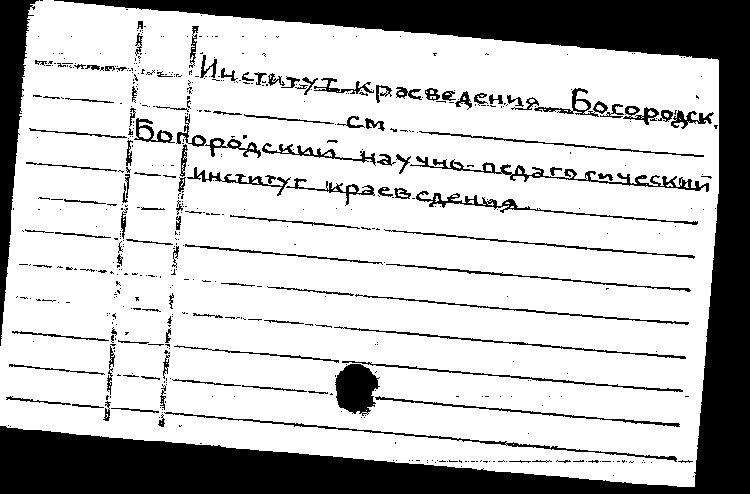 Институт краеведения Богородск.
см.
Богородский научно-педагогический
институт краеведения.